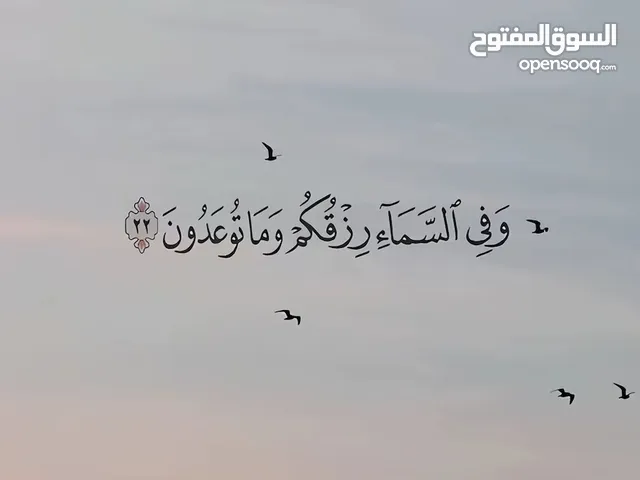 السوق المفتوح
opensooq.com
وَفِي ٱلسَّمَآءِ رِزۡقُكُمۡ وَمَا تُوعَدُونَ ٢٢